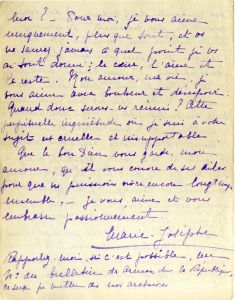 moi ? - Pour moi, je vous aime
uniquement, plus que tout ; et vous
ne saurez jamais à quel point je vous
ai tout donné ; le cœur, l'âme et
le reste. Mon amour, ma vie, je
vous aime avec bonheur et désespoir.
Quand donc serons-nous réunis ? Cette
perpétuelle inquiétude où je suis à votre
sujet est cruelle et insupportable
Que le bon Dieu vous garde, mon
amour, qu'il vous couvre de ses ailes
pour que nous puissions vivre encore longtemps
ensemble. Je vous aime et vous
embrasse passionnément
Marie-Josèphe
Rapportez-moi, si c'est possible, un
No du bulletin de la République,
que je mettrai dans nos archives